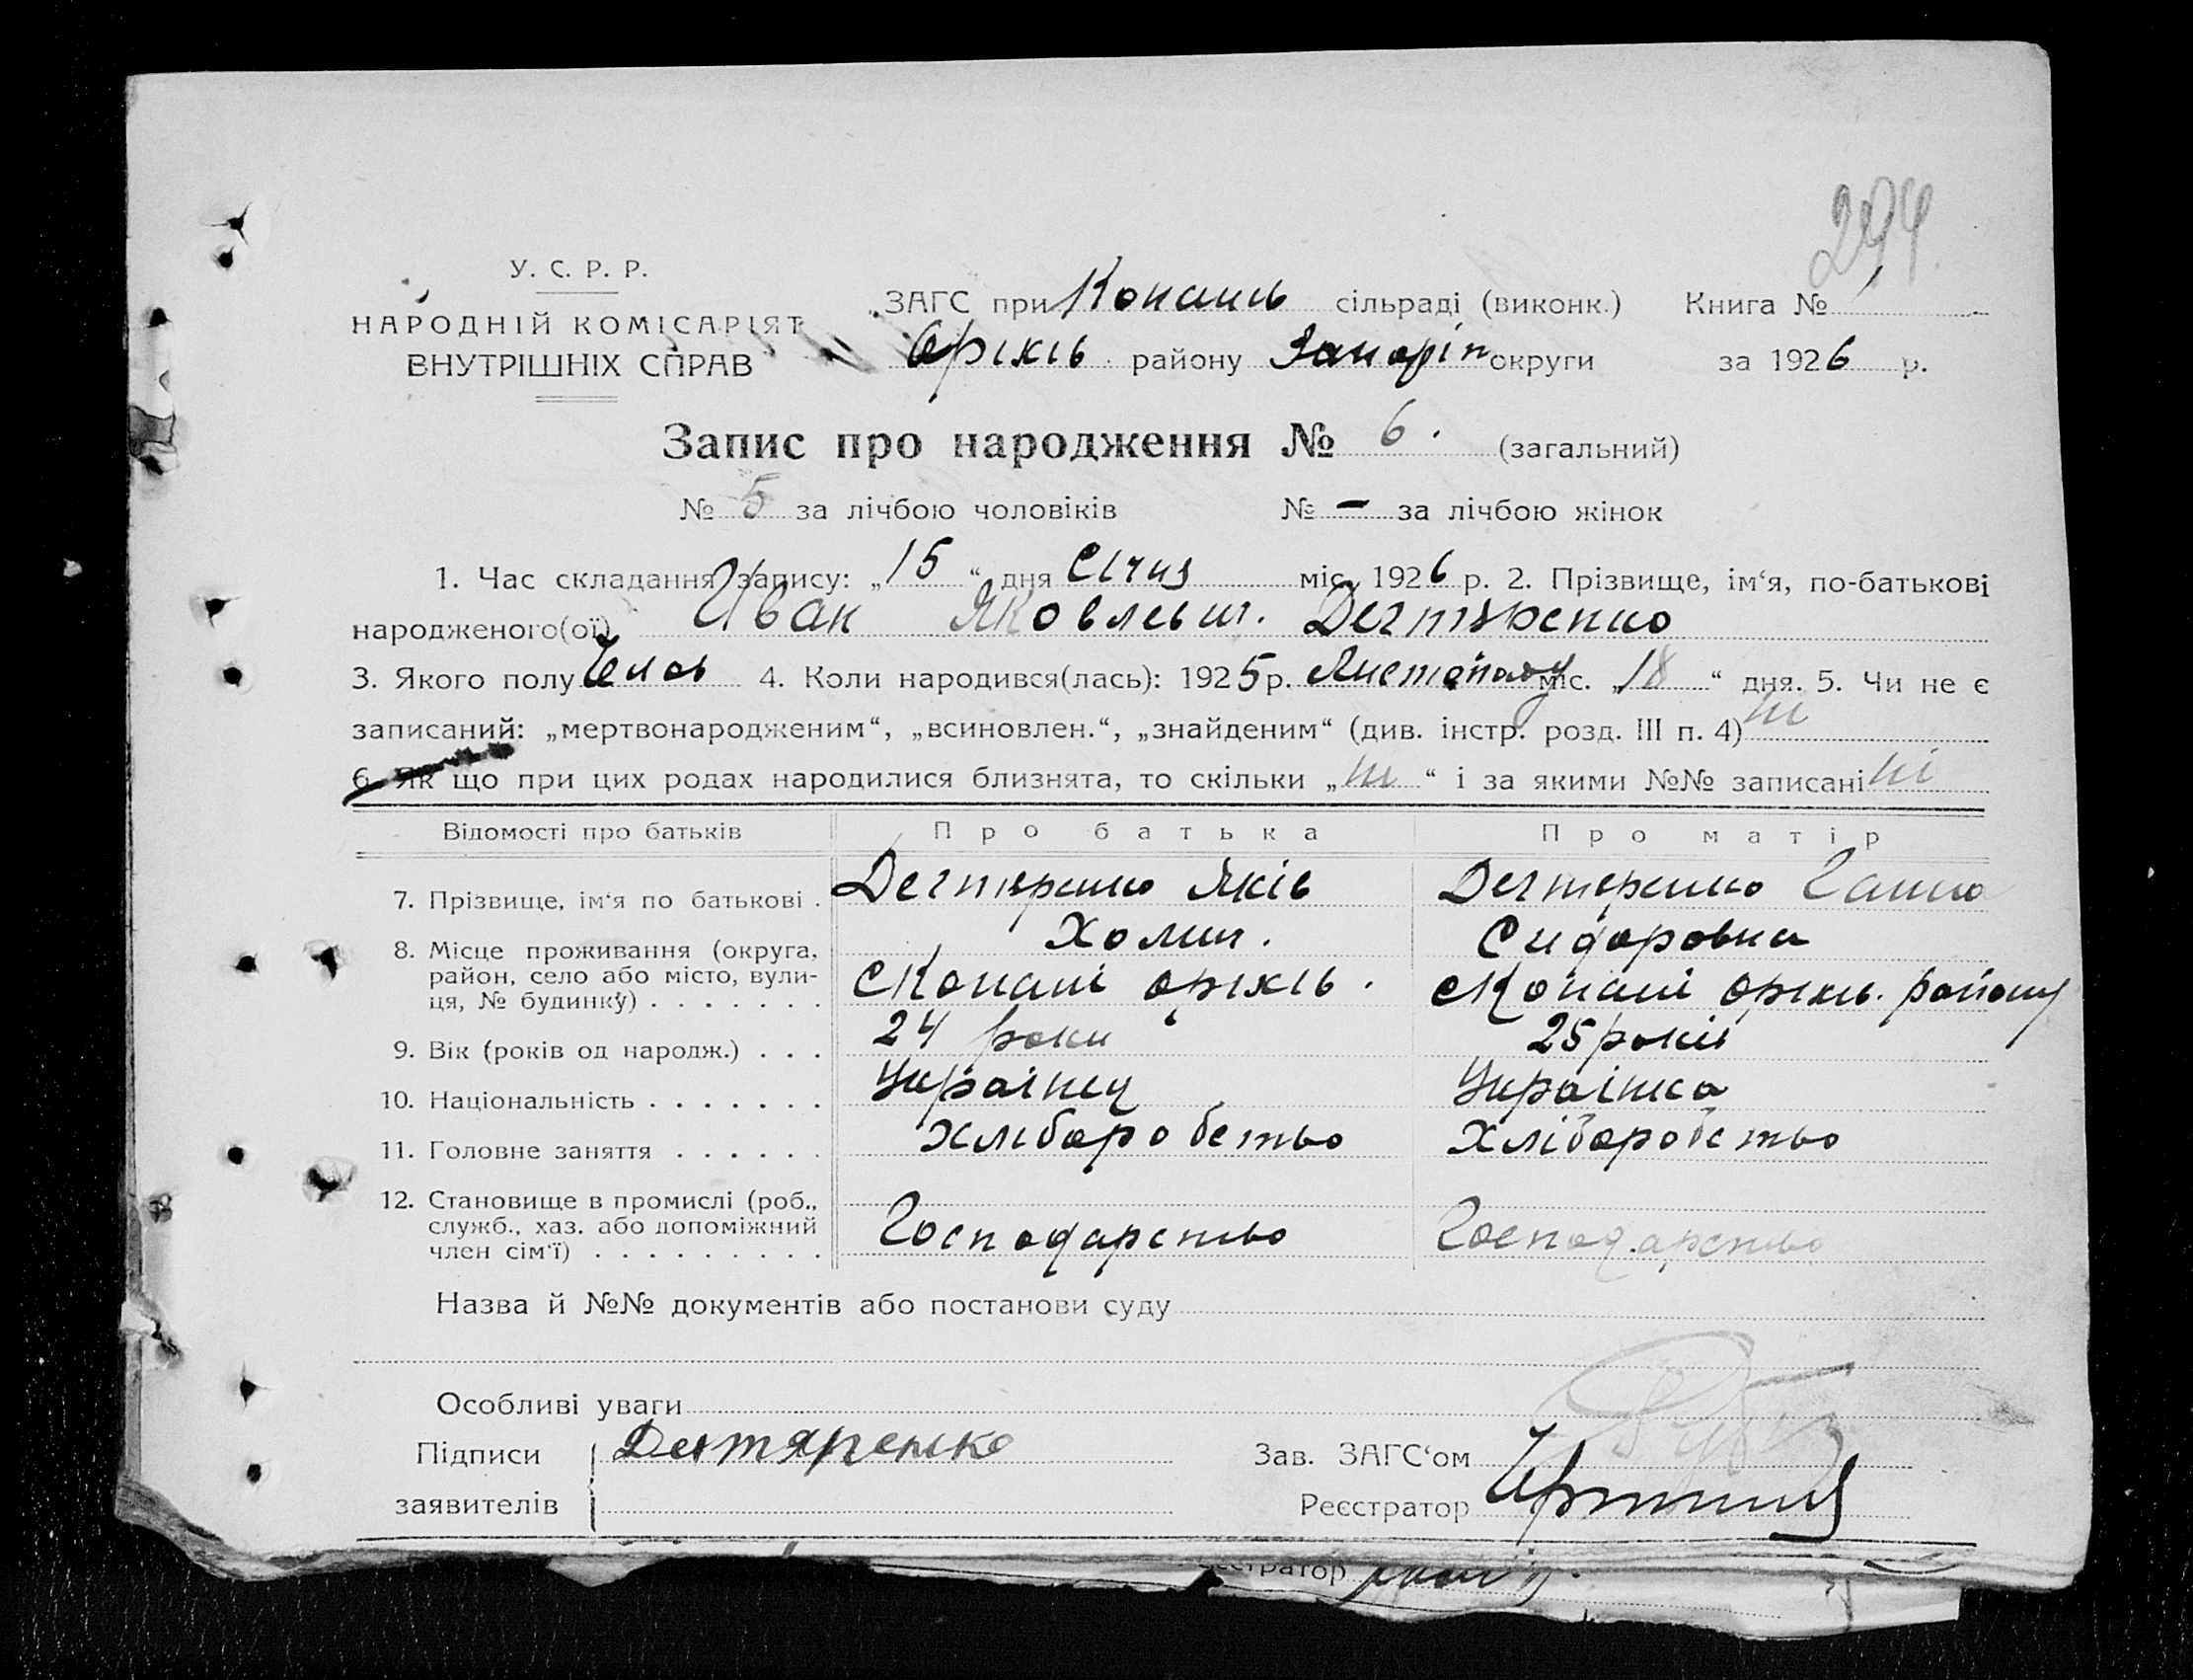 294
У. С. Р. Р.
НАРОДНІЙ КОМІСАРІЯТ
ВНУТРІШНІХ СПРАВ
ЗАГС при Копань сільраді (виконк.) Книга № 1
Оріхів району Запоріж округи за 1926 р.
Запис про народження № 6. (загальний)
№ 5 за лічбою чоловіків № – за лічбою жінок
1. Час складання запису: „15“ дня Січня міс. 1926 р. 2. Прізвище, ім‘я, по-батькові
народженого(ої) Иван Яковлевич. Дегтяренко
3. Якого полу Чолов 4. Коли народився(лась): 1925 р. Листопаду міс. „18“ дня. 5. Чи не є
записаний: „мертвонародженим“, „всиновлен.“, „знайденим“ (див. інстр. розд. III п. 4) ні
6. Як що при цих родах народилися близнята, то скільки „ні“ і за якими №№ записані ні
Відомості про батьків Про батька Про матір
7. Прізвище, ім‘я по батькові . Дегтяренко Яків Дегтеренко Ганна
Хомич. Сидоровна
8. Місце проживання (округа,
район, село або місто, вули-
ця, № будинку) . . . . . . . с Копані оріхів. с Копані оріхів. району
9. Вік (років од народж.) . . . 24 роки 25 років
10. Національність . . . . . . . Українец Українка
11. Головне заняття . . . . . . Хліборобство Хліборобство
12. Становище в промислі (роб.,
служб., хаз. або допоміжний
член сім‘ї) . . . . . . . . . . Господарство Господарство
Назва й №№ документів або постанови суду
Особливі уваги
Підписи Дегтяренко Зав. ЗАГС‘ом
заявителів Реєстратор
еєстратор